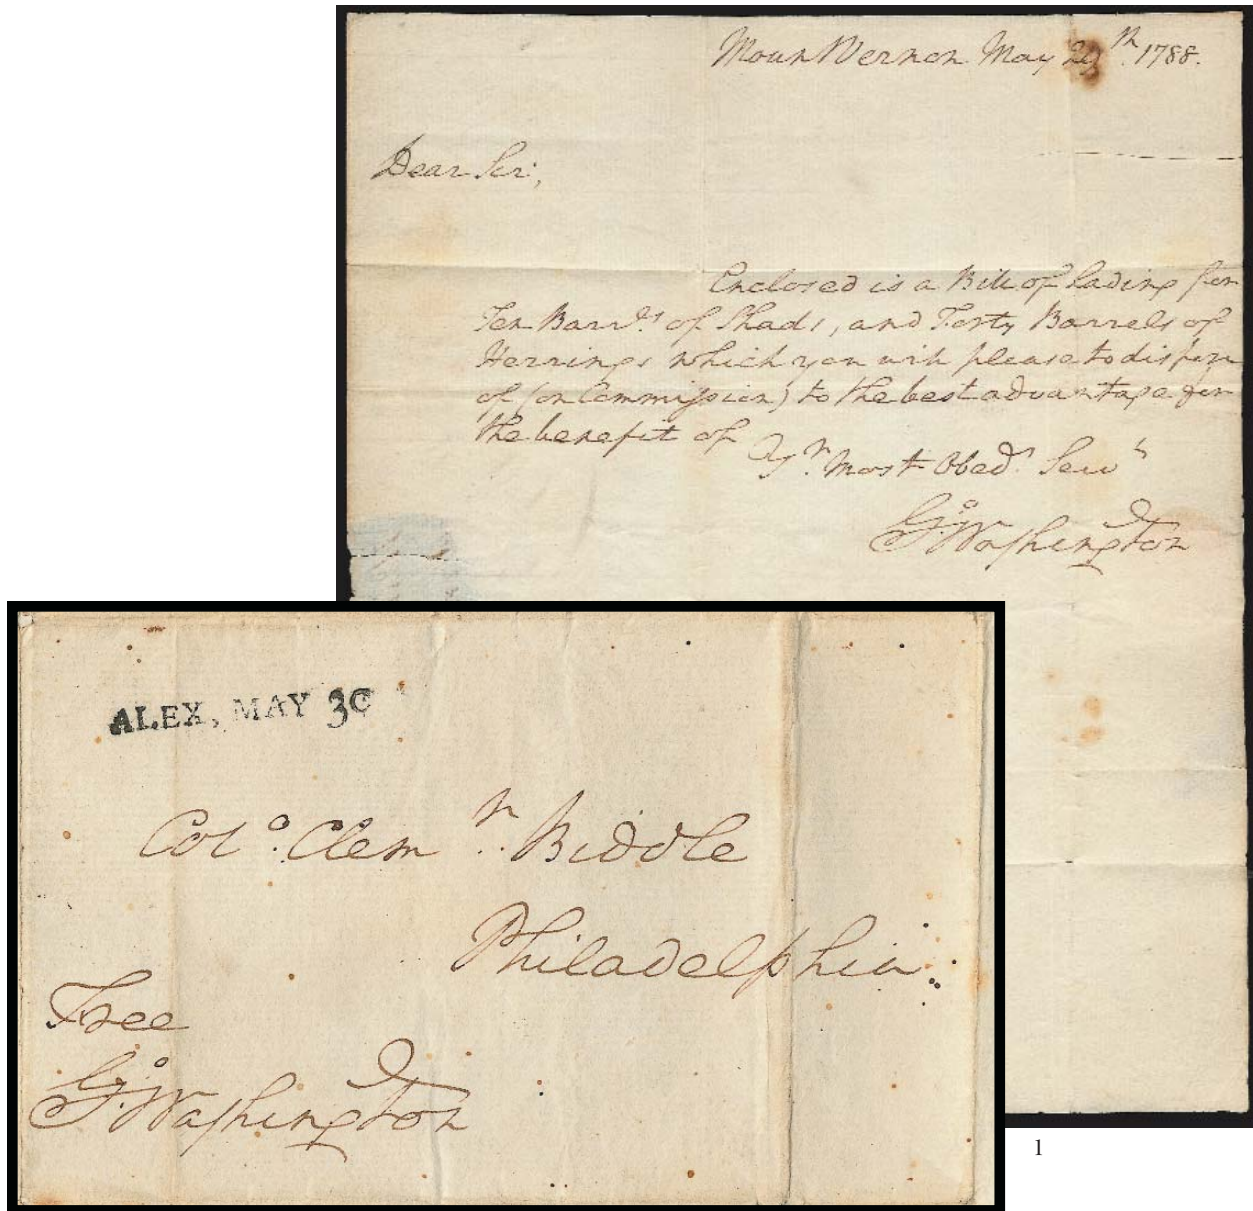 Moun Vernon May 29th. 1788.
Dear Sir;
Enclosed is a Bill of lading for
Ten Barrls. of Shads, and Forty Barrels of
Herrings which you will please to dispose
of (on Commission) to the best advantage for
the benefit of
Yr. Most Obedt. Servt
Go. Washington
ALEX, MAY 30
Colo. Clemt. Biddle
Philadelphia
Free
Go. Washington
1